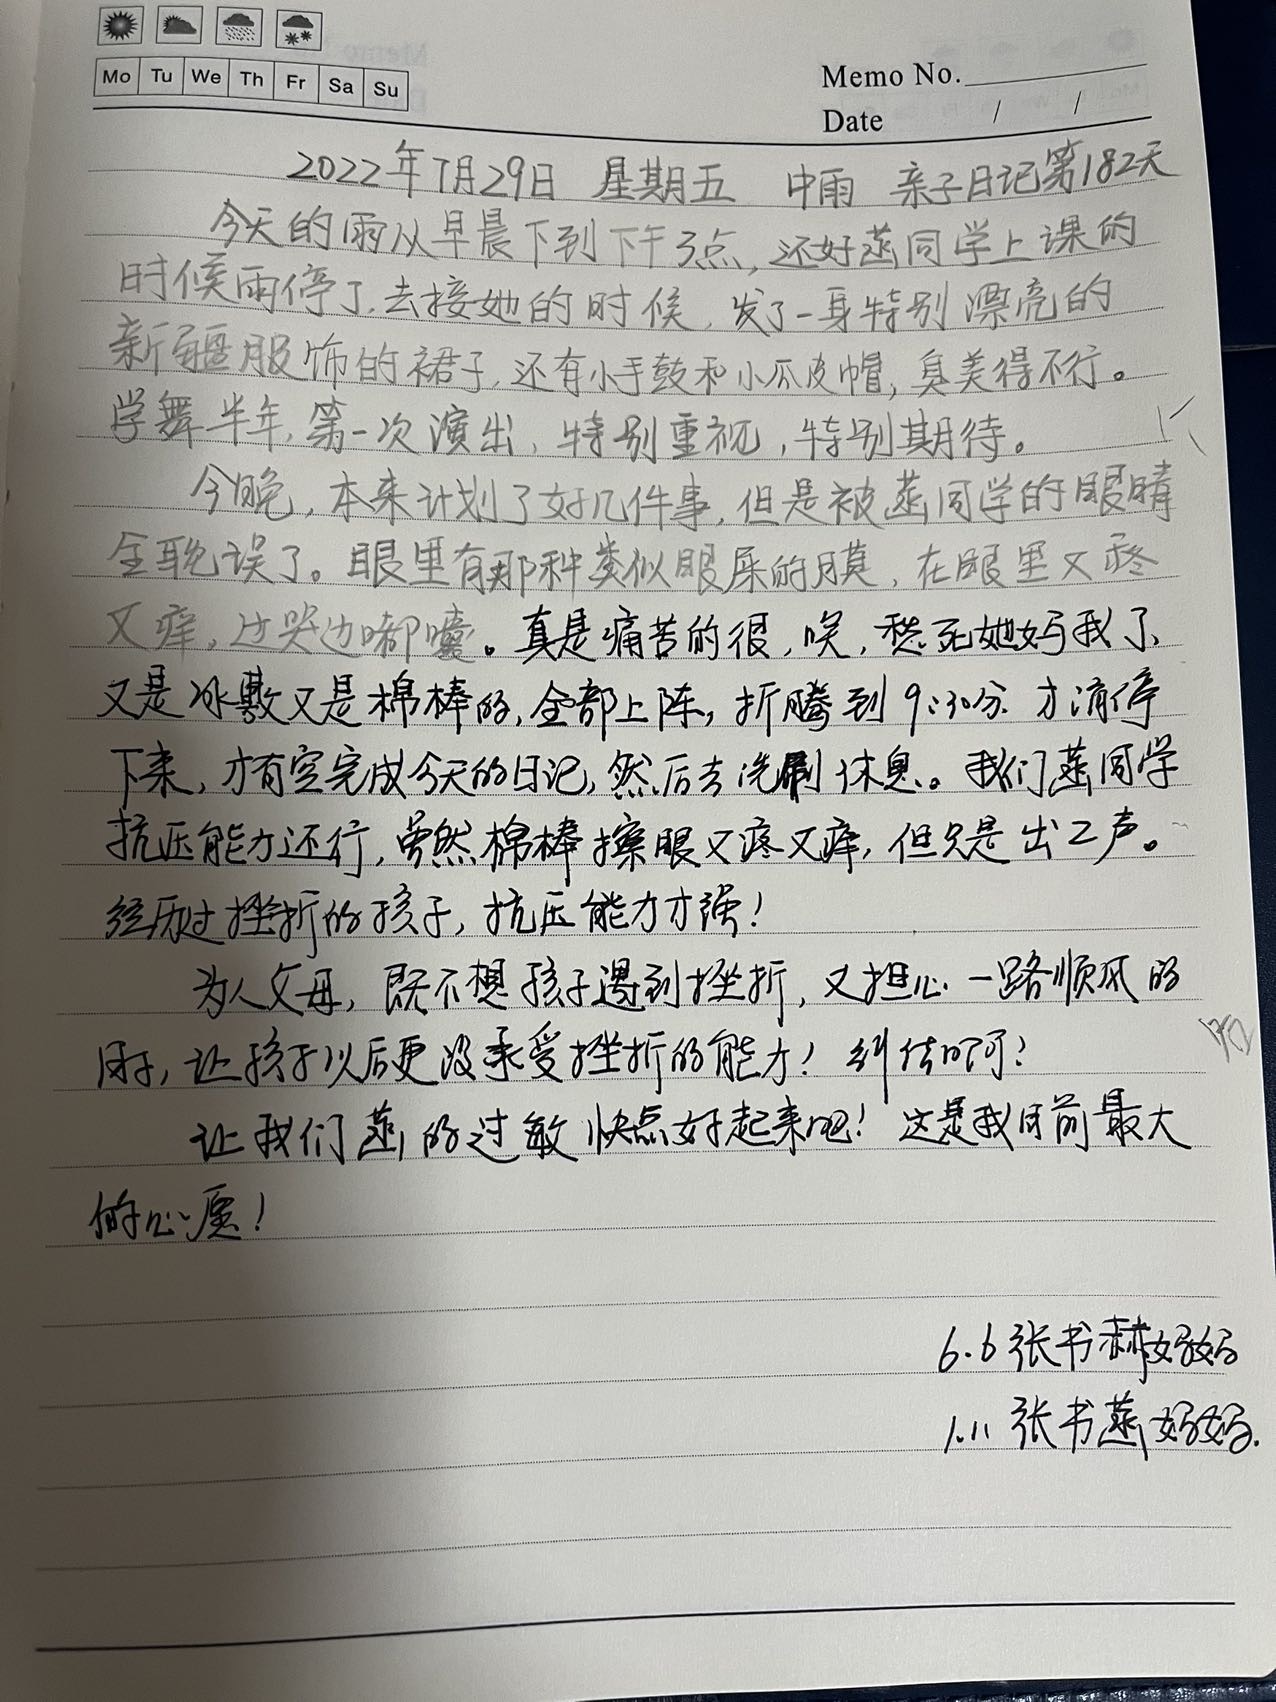 Mo Tu We Th Fr Sa Su
Memo No.
Date / /
2022年7月29日 星期五 中雨 亲子日记第182天
今天的雨从早晨下到下午3点,还好菡同学上课的
时候雨停了,去接她的时候,发了一身特别漂亮的
新疆服饰的裙子,还有小手鼓和小瓜皮帽,真美得不行。
学舞半年,第一次演出,特别重视,特别期待。
今晚,本来计划了好几件事,但是被菡同学的眼睛
全耽误了。眼里有那种类似眼屎的膜,在眼里又疼
又痒,边哭边嘟囔。真是痛苦的很,唉,愁死她妈我了,
又是冰敷又是棉棒的,全部上阵,折腾到9:30分才消停
下来,才有空完成今天的日记,然后去洗刷休息。我们菡同学
抗压能力还行,虽然棉棒擦眼又疼又痒,但只是出2声。
经历过挫折的孩子,抗压能力才强!
为人父母,既不想孩子遇到挫折,又担心一路顺风的
陪,让孩子以后更没承受挫折的能力!纠结啊?
让我们菡的过敏快点好起来吧!这是我目前最大
的心愿!
6.6张书赫妈妈
1.11张书菡妈妈.